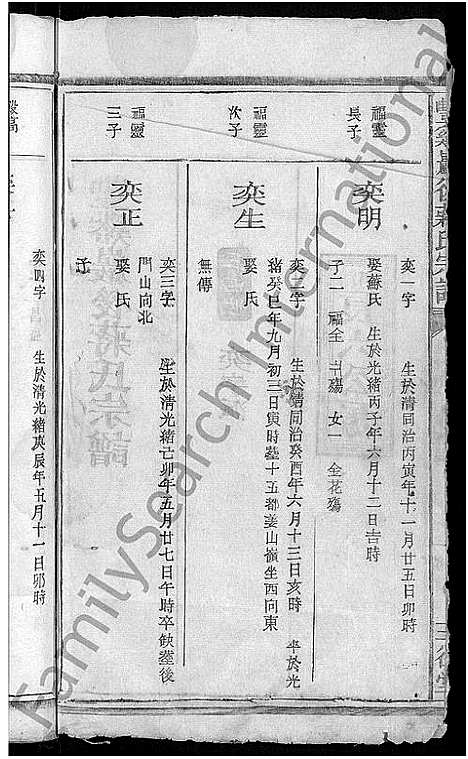 福靈長子
奕明
奕一字　生於清同治丙寅年十一月廿五日卯時
娶蘇氏　生於光緒丙子年六月十二日吉時
子二　福全　殤　女一　金花殤
福靈次子
奕生
奕二字　生於清同治癸酉年六月十三日亥時　卒於光
緒癸巳年九月初三日寅時塟十五都姜山嶺坐西向東
娶　氏
無傳
福靈三子
奕正
奕三字　生於清光緒己卯年五月廿七日午時卒缺塟後
門山向北
娶　氏
子
字　生於清光緒庚辰年五月十一日卯時
FamilySearch International